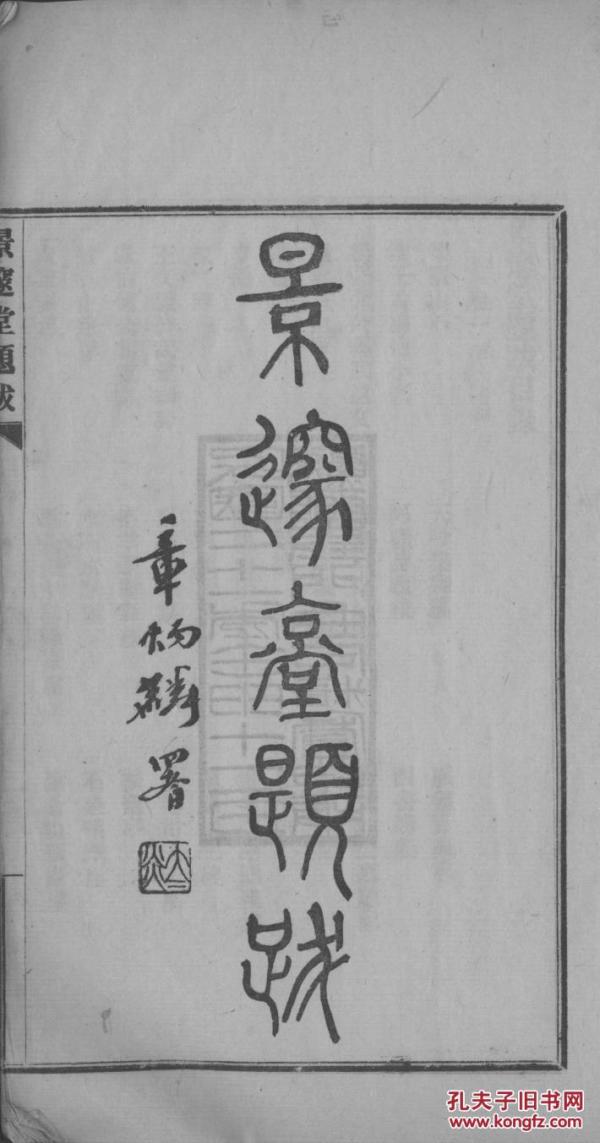 景邃堂題跋
章炳麟署
太炎
景邃堂題跋
孔夫子旧书网
www.kongfz.com